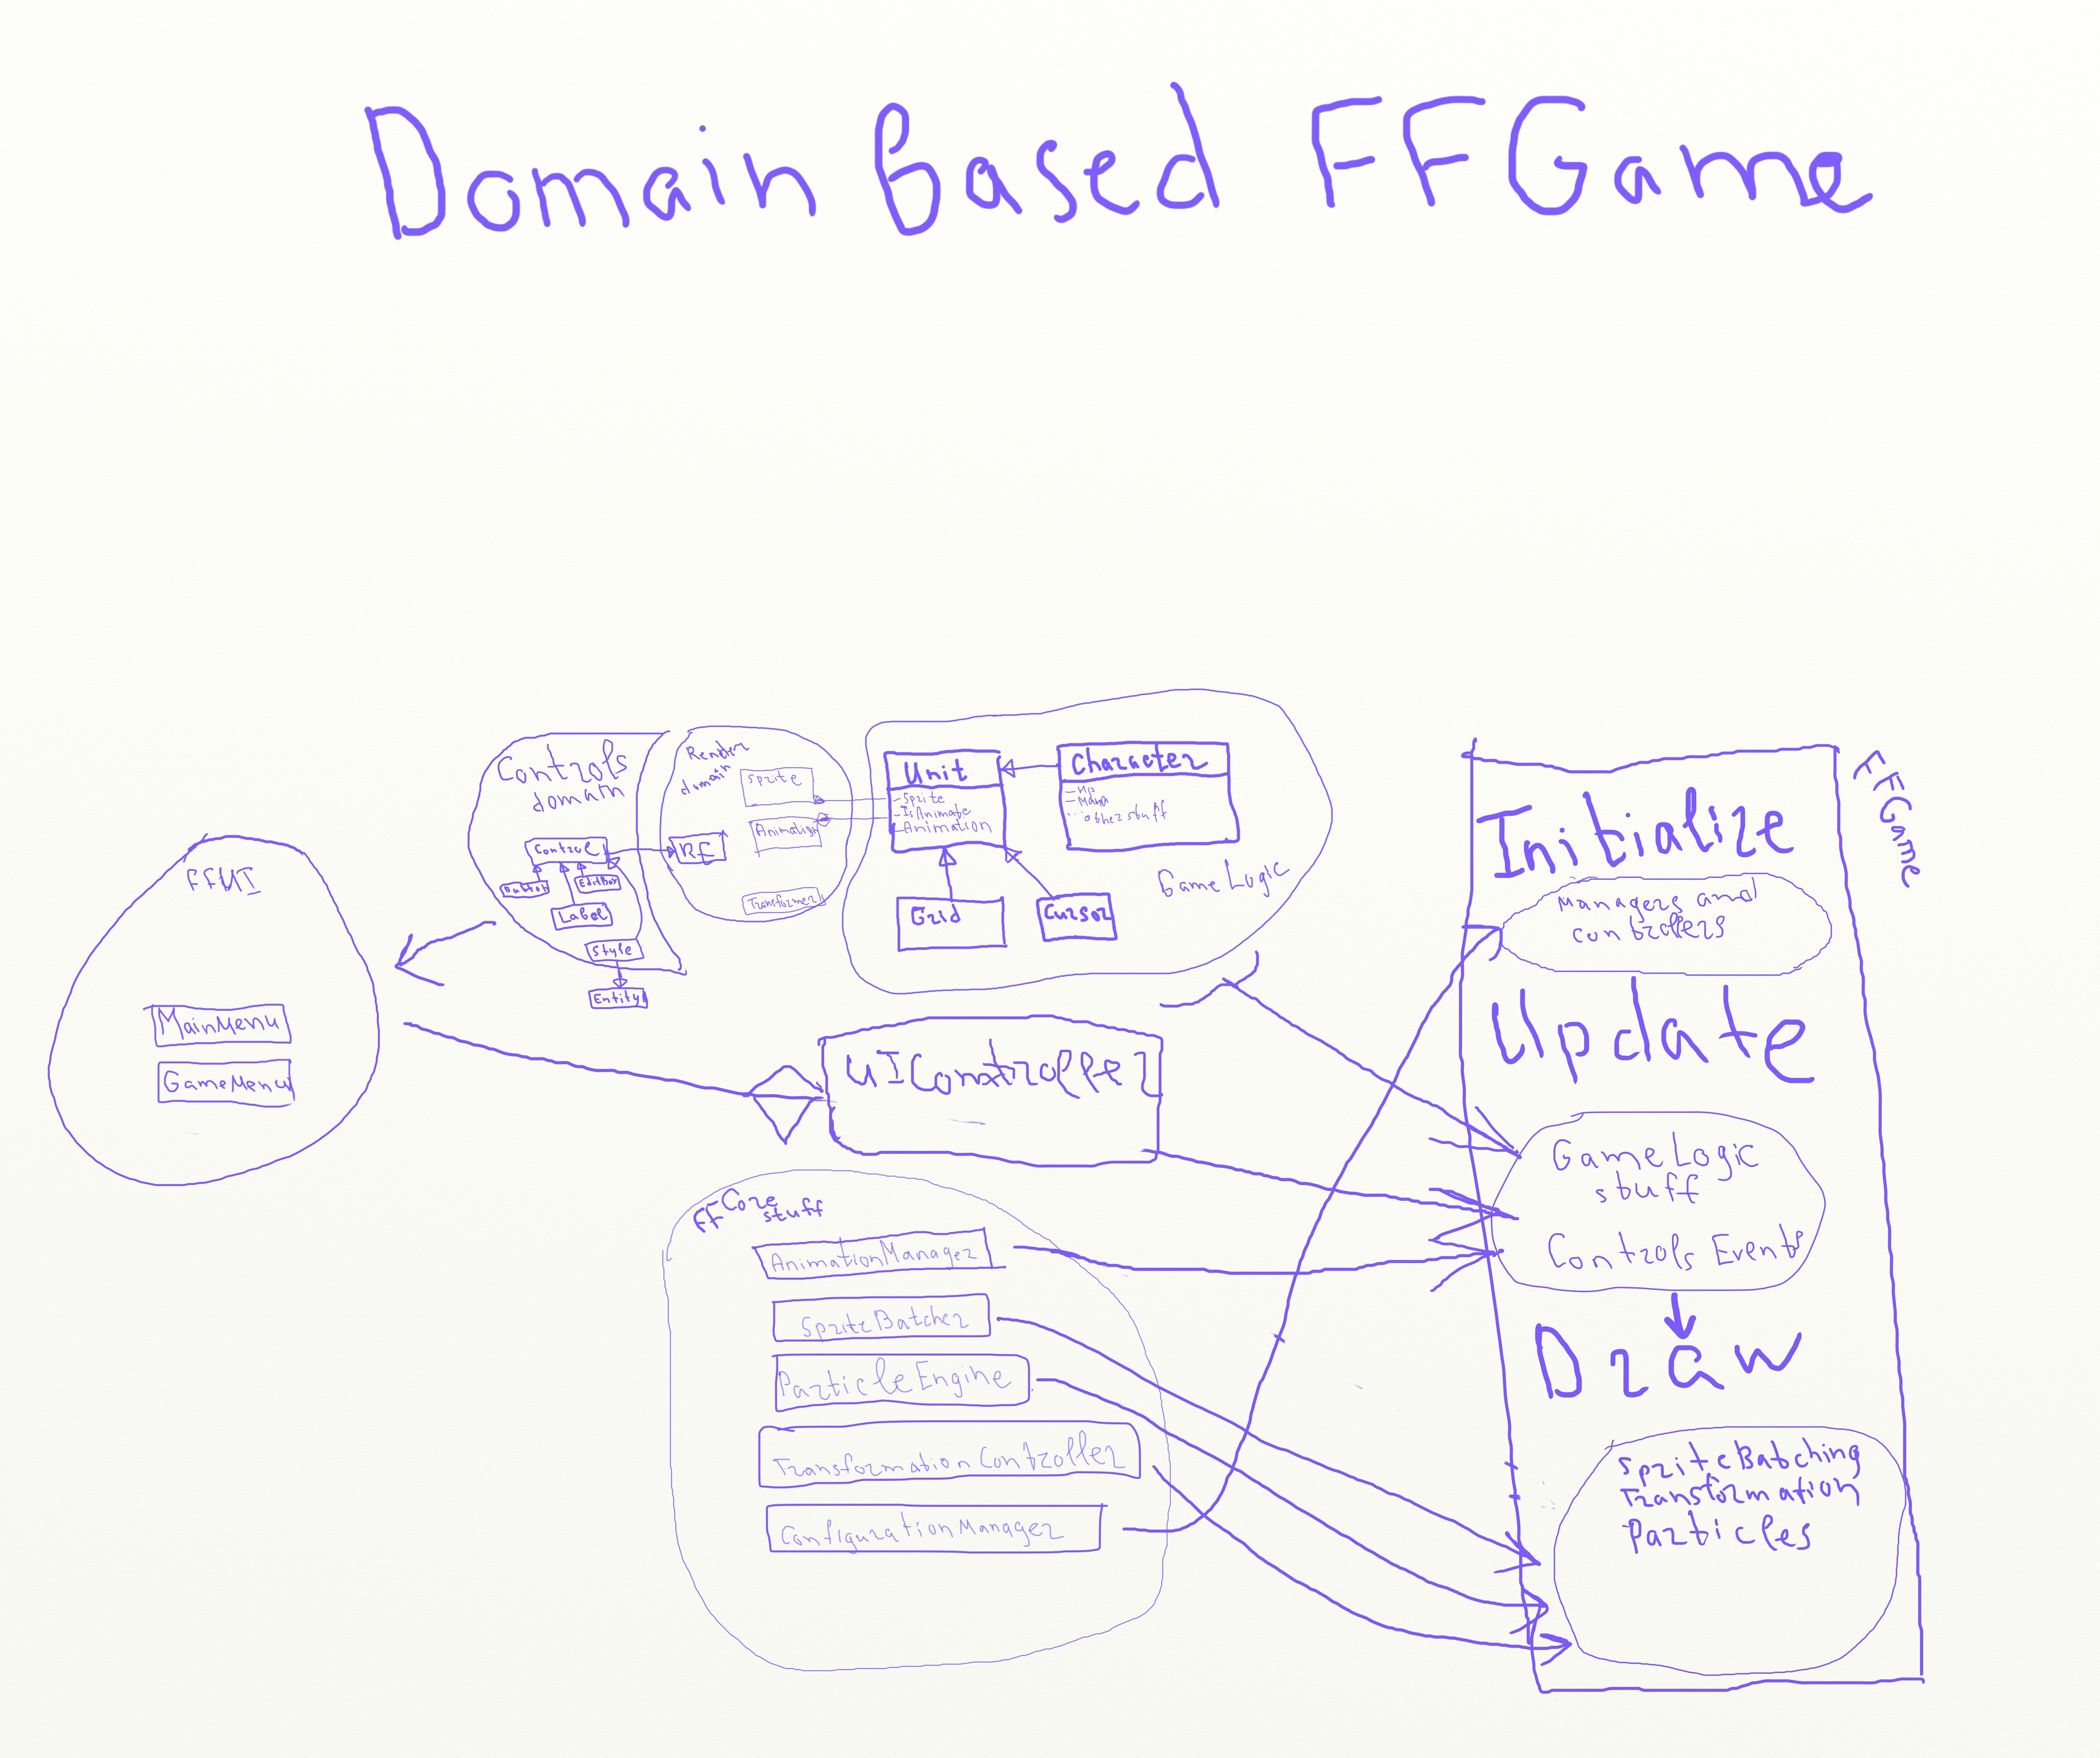 Domain Based FFGame
FFUI
MainMenu
GameMenu
Controls
domain
Control
Button
EditBox
Label
Style
Entity
Render
domain
Sprite
Animation
RE
Transformer
Unit
-Sprite
-IsAnimate
-Animation
Character
-Hp
-Mana
...other stuff
Grid
Cursor
GameLogic
UIController
FFCore
stuff
AnimationManager
SpriteBatcher
ParticleEngine
TransformationController
ConfigurationManager
FFGame
Initialize
Managers and
controllers
Update
GameLogic
stuff
Controls Events
Draw
SpriteBatching
Transformation
Particles